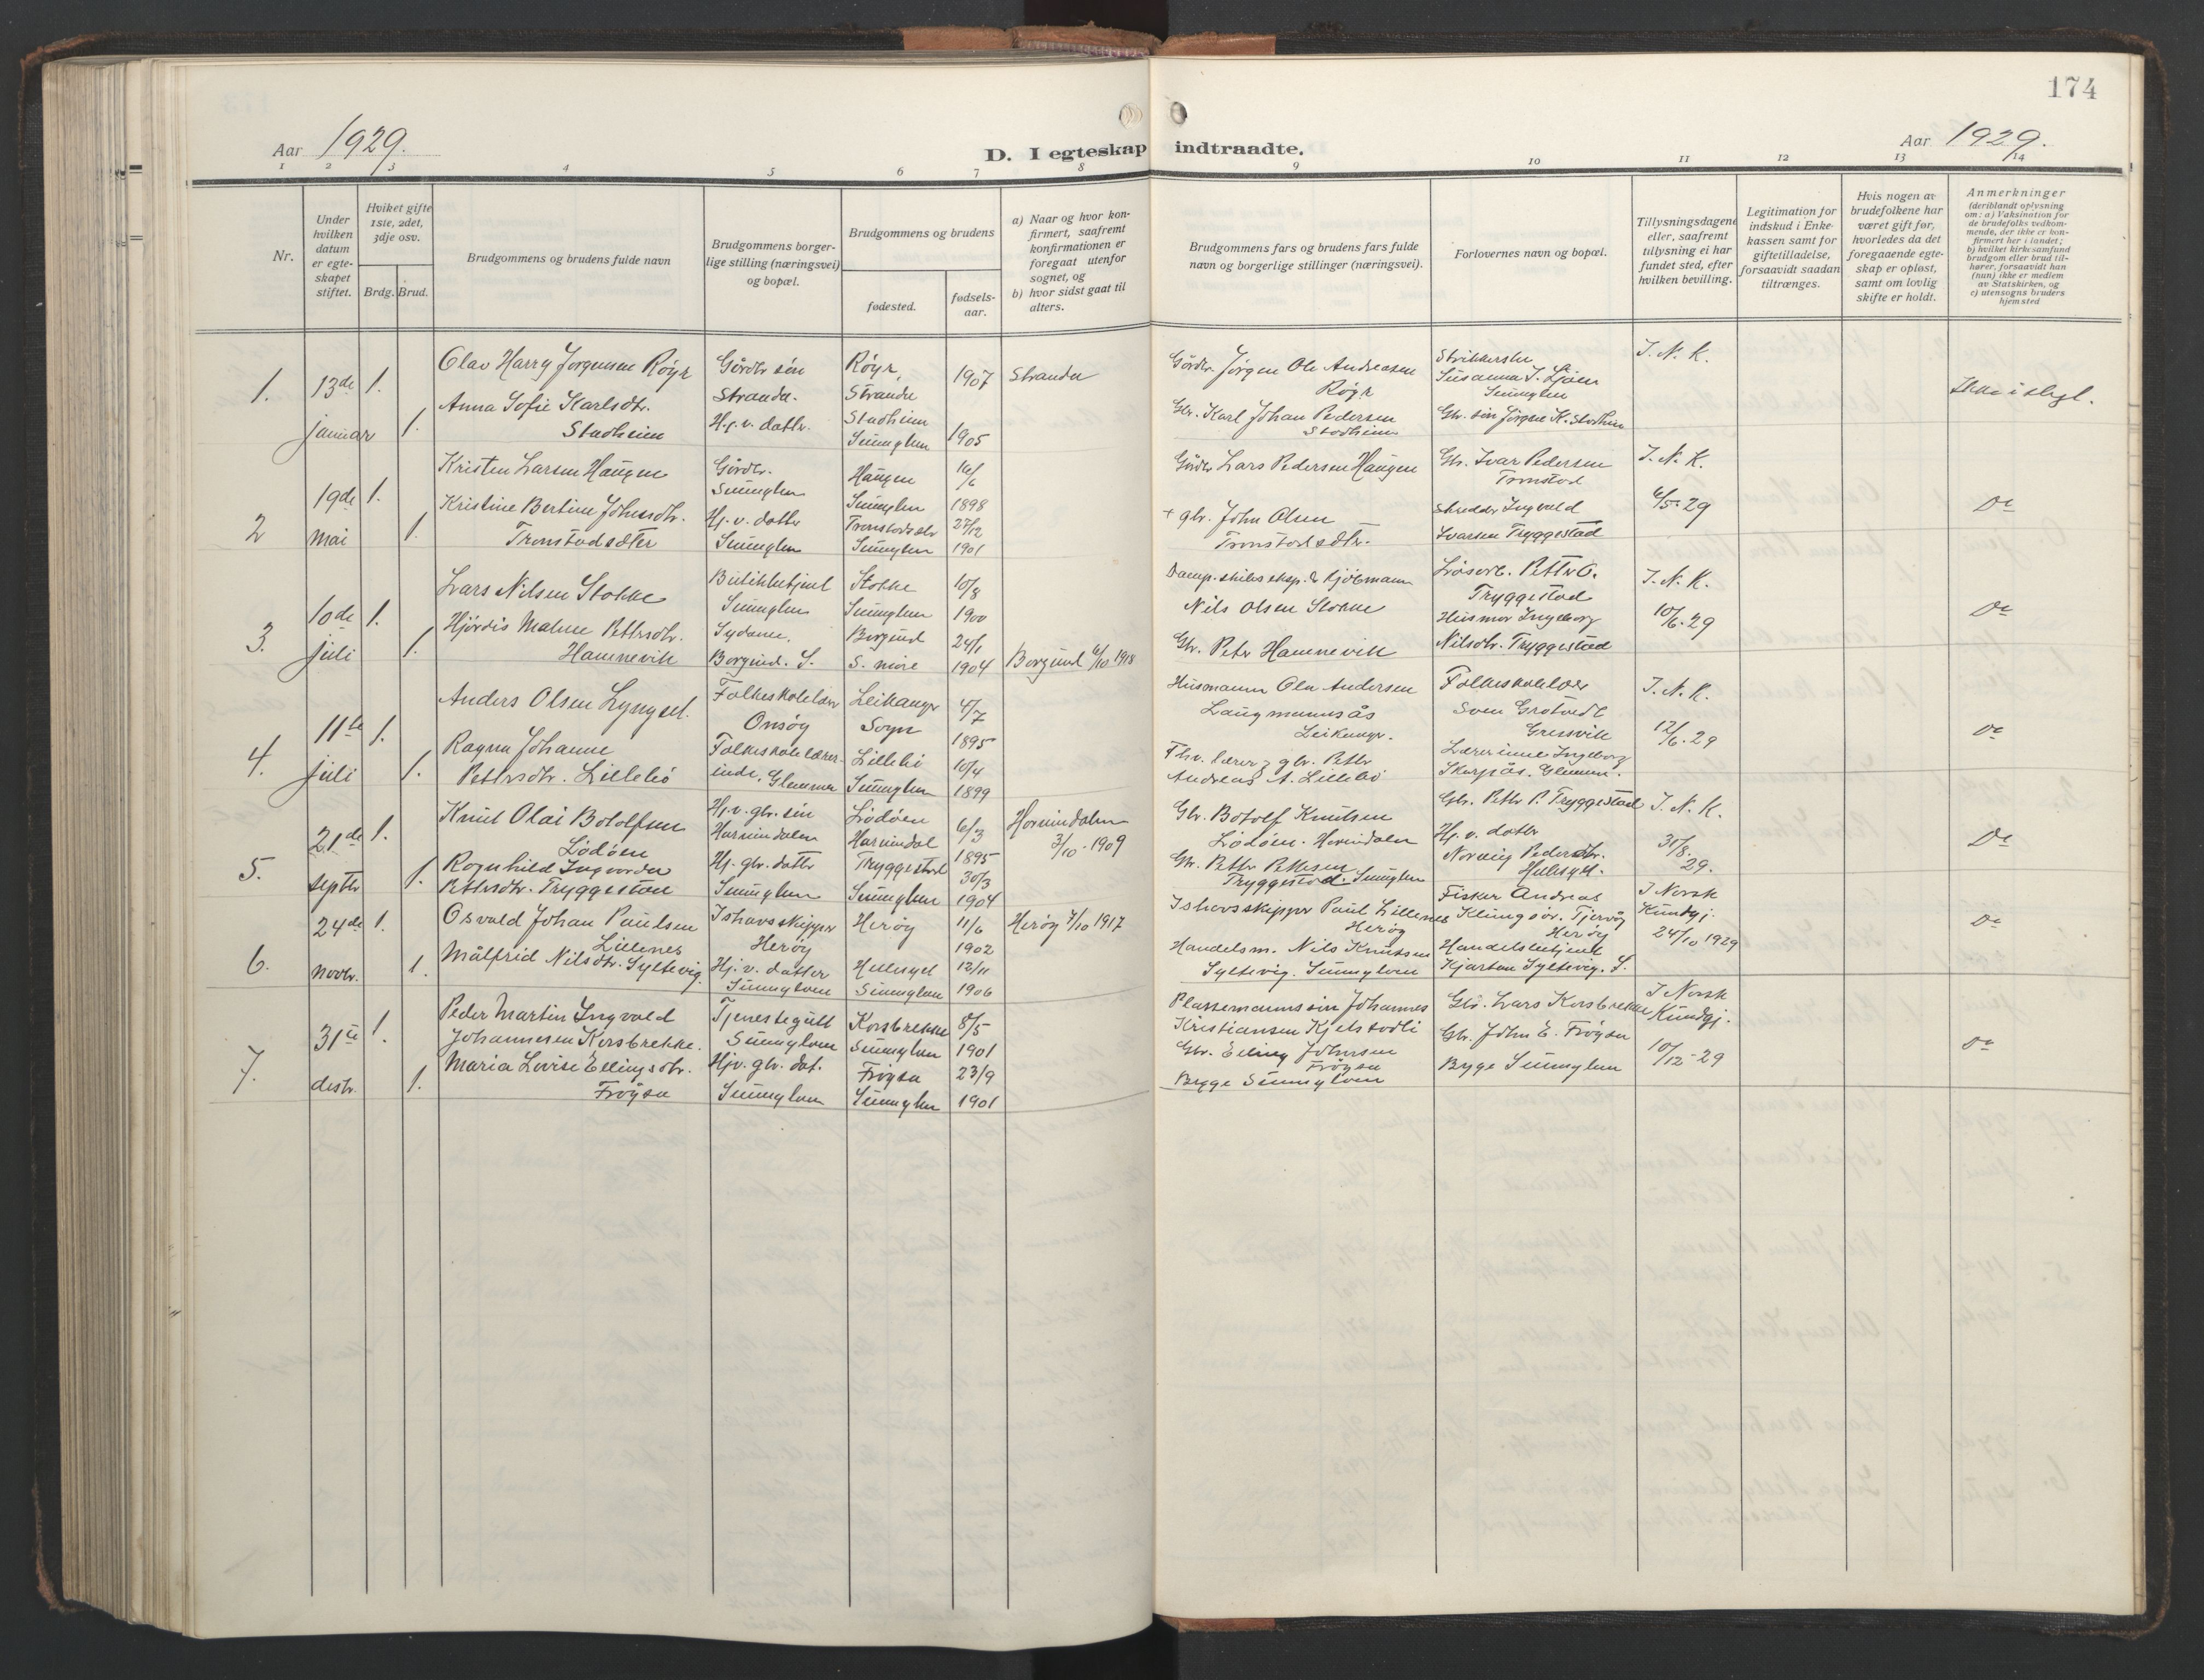 174
Aar 1929.
D. I egteskap indtraadte.
Aar 1929.
1 2 3 4 5 6 7 8 9 10 11 12 13 14
Nr.
Under hvilken datum er egte-skapet stiftet.
Hviket gifte 1ste, 2det, 3dje osv.
Brdg. Brud.
Brudgommens og brudens fulde navn
Brudgommens borger-lige stilling (næringsvei) og bopæl.
Brudgommens og brudens
fødested.
fødsels-aar.
a) Naar og hvor kon-firmert, saafremt konfirmationen er foregaat utenfor sognet, og
b) hvor sidst gaat til alters.
Brudgommens fars og brudens fars fulde navn og borgerlige stillinger (næringsvei).
Forlovernes navn og bopæl.
Tillysningsdagene eller, saafremt tillysning ei har fundet sted, efter hvilken bevilling.
Legitimation for indskud i Enke-kassen samt for giftetilladelse, forsaavidt saadan tiltrænges.
Hvis nogen av brudefolkene har været gift før, hvorledes da det foregaaende egte-skap er opløst, samt om lovlig skifte er holdt.
Anmerkninger (deriblandt oplysning om: a) Vaksination for de brudefolks vedkom-mende, der ikke er kon-firmert her i landet; b) hvilket kirkesamfund brudgom eller brud til-hører, forsaavidt han (hun) ikke er medlem av Statskirken, og c) utensogns bruders hjemsted
1. 13de januar 1. 1.
Olav Harry Jørgensen Røyr
Anna Sofie Karlsdtr.
Stadheim
Gårdbr søn
Stranda.
H.j.v. dattr.
Røyr,
Stranda
Stadheim
Sunnylven
1907
1905
Stranda
Gårdbr. Jørgen Ole Andreasen
Røyr
Gbr. Karl Johan Pedersen
Stadheim
Strikkerske
Susanna J. Ljøen
Sunnylven
Gbr. søn Jørgen K. Stadheim
J. N. K.
Ikke i slegt.
2 19de mai 1. 1.
Kristen Larsen Haugen
Kristine Bertine Johnsdtr.
Tronstadsæter
Gårdbr.
Sunnylven
Hj. v. datter
Sunnylven
Haugen
Sunnylven
Tronstadsætr
Sunnylven
16/6
1898
27/12
1901
Gårdbr Lars Pedersen Haugen
+ gbr. John Olsen
Tronstadsætr.
Gbr. Ivar Pedersen
Tronstad
Skredder Ingvald
Ivarsen Tryggestad
J. N. K.
6/5-29
Do
3. 10de juli 1. 1.
Lars Nilsen Stokke
Hjørdis Malene Pettersdtr.
Hamnevik
Butikkbetjent
Sunnylven
Sydame.
Borgund. S.
Stokke
Sunnylven
Borgund
S. møre
10/8
1900
24/1
1904
Borgund 6/10 1918
Damp.skibs eksp. & Kjøbmann
Nils Olsen Stokke
Gbr. Peter Hamnevik
Petter O.
Tryggestad
Husmor Ingeborg
Nilsdtr. Tryggestad
J. N. K.
10/6-29
Do
4. 11te juli 1. 1.
Anders Olsen Lyngset.
Ragna Johanne
Pettersdtr. Lillebø
Folkeskolelærer
Onsøy
Folkeskolelærer-
inde. Glemmen
Leikanger
Sogn
Lillebø
Sunnylven
4/7
1895
10/4
1899
Husmann Ole Andersen
Laugmannsås
Leikanger.
Fhv. lærer & gbr. Petter
Andreas A. Lillebø
Folkeskolelærer
Sven Grotvedt
Gressvik
Lærerinne Ingeborg
Skarpås. Glemmen.
J. N. K.
12/6-29
Do
5. 21de septbr 1. 1.
Knut Olai Botolfsen
Lødøen
Ragnhild Ingvarda
Pettersdtr. Tryggestad
Hj.v. gbr. søn
Hornindalen
Hj. gbr. datter
Sunnylven
Lødøen
Hornindal
Tryggestad
Sunnylven
6/3
1895
30/3
1904
Hornindalen
3/10-1909
Gbr. Botolf Knutsen
Lødøen. Hornindalen
Gbr. Petter Pettersen
Tryggestad. Sunnylven
Gbr. Petter P. Tryggestad
Hj. v. datter
Pedersdtr.
Hellesylt.
J. N. K.
31/8.
29.
Do
6. 24de novbr. 1. 1.
Osvald Johan Paulsen
Lillenes
Målfrid Nilsdtr. Syltevig
Ishavsskipper
Herøy
Hj. v. datter
Sunnylven
Herøy
Hellesylt
Sunnylven
11/6
1902
12/11
1906
Herøy 7/10 1917
Ishavsskipper Paul Lillenes
Herøy
Handelsm. Nils Knutsen
Syltevig. Sunnylven
Fisker Andreas
Klungsør. Tjervåg
Herøy
Handelsbetjent
Kjartan Syltevig. S.
J Norsk
Kundgj.
24/10 1929
Do
7. 31te desbr. 1. 1.
Peder Martin Ingvald
Johannesen Korsbrekke.
Maria Lovise Ellingsdtr.
Frøysa
Tjenestegutt
Sunnylven
Hjv. gbr. dat.
Sunnylven
Korsbrekke
Sunnylven
Frøysa
Sunnylven
8/5
1901
23/9
1901
Plassemannssøn Johannes
Kristiansen Kjelstadli
Gbr. Elling Johnsen
Frøysa
Bygge Sunnylven
Gbr. Lars Korsbrekke
Gbr. John E. Frøysa
Bygge Sunnylven
J Norsk
Kundgj.
10/12-29
Do